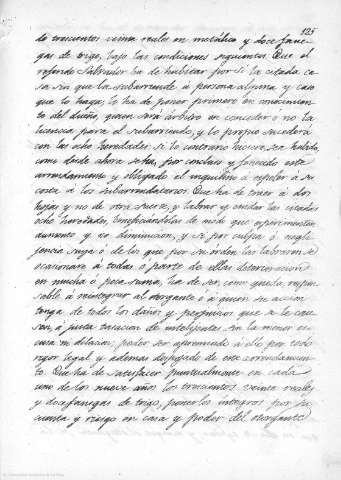 123
de trescientos veinte reales en metálico y doce fane-
gas de trigo, bajo las condiciones siguientes: Que el
referido Salvador ha de habitar por sí la citada ca-
sa sin que la subarriende a persona alguna y caso
que lo haga, lo ha de poner primero en conocimien-
to del dueño, quien será árbitro en conceder o no la
licencia para el subarriendo, y lo propio sucederá
con las ocho heredades; si lo contrario hiciere, sea habido
como desde ahora se ha, por concluso y fenecido este
arrendamiento y obligado el inquilino a expeler a su
costa a los subarrendatarios. Que ha de tener a dos
hojas y no de otra suerte, y labrar y cuidar las citadas
ocho heredades, beneficiándolas de modo que experimenten
aumento y no diminución, y si por culpa o negli-
gencia suya o de los que por su orden las labraren se
ocasionare a todas o parte de ellas deterioración
en mucha o poca suma, ha de ser, como queda respon-
sable a reintegrar al otorgante o a quien su acción
tenga de todos los daños y perjuicios que se le cau-
sen, a justa tasación de inteligentes sin la menor es-
cusa ni dilación; poder ser apremiado a ello por todo
rigor legal y además despojado de este arrendamien-
to. Que ha de satisfacer puntualmente en cada
uno de los nueve años los trescientos veinte reales
y doce fanegas de trigo, ponerlos íntegros por su
cuenta y riesgo en casa y poder del otorgante